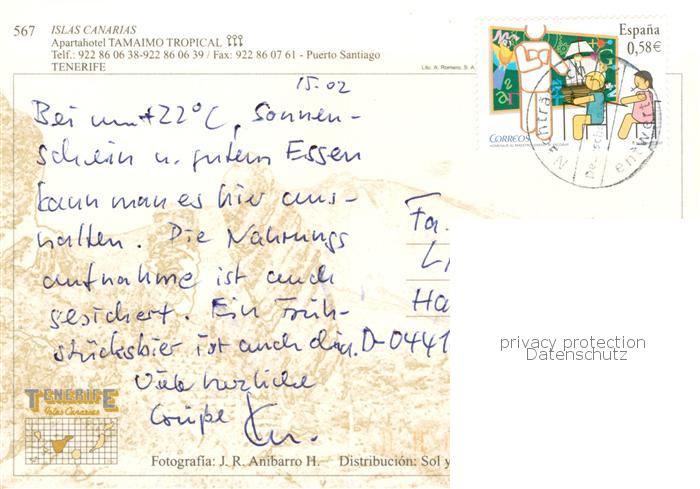 567 ISLAS CANARIAS
Apartahotel TAMAIMO TROPICAL
Telf.: 922 86 06 38-922 86 06 39 / Fax: 922 86 07 61 - Puerto Santiago
TENERIFE
Lito. A. Romero, S. A.
España
0,58€
CORREOS
15.02
Bei +22°C, Sonnen-
schein u. gutem Essen
kann man es hier aus-
halten. Die Nahrungs
aufnahme ist auch
gesichert. Ein Früh-
stücksbier ist auch drin.
Viele herzliche
Grüße
Fa.
Li
Ha
D-0441
TENERIFE
Islas Canarias
Fotografía: J. R. Anibarro H. Distribución: Sol y
privacy protection
Datenschutz